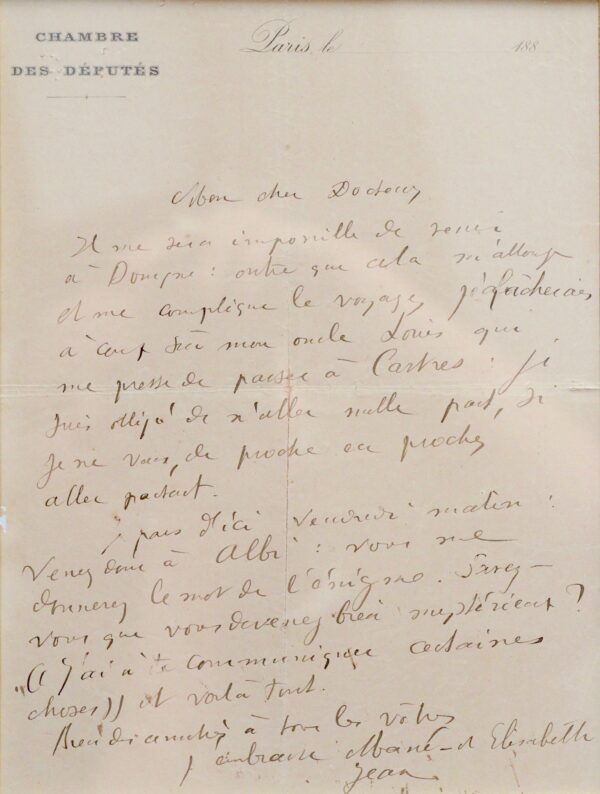 CHAMBRE
DES DÉPUTÉS
Paris, le 188
Mon cher Docteur,
Il me sera impossible de venir
à Dourgne : outre que cela m'allonge
et me complique le voyage, je fâcherais
à coup sûr mon oncle Louis qui
me presse de passer à Castres : je
suis obligé de n'aller nulle part, si
je ne veux, de proche en proche,
aller partout.
Je pars d'ici vendredi matin :
Venez donc à Albi : vous me
donnerez le mot de l'énigme. Savez-
vous que vous devenez bien mystérieux ?
"J'ai à te communiquer certaines
choses)) et voilà tout.
Bien des amitiés à tous les vôtres
J'embrasse Marie et Elisabeth
Jean